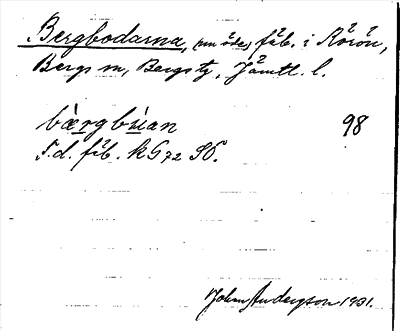 Bergbodarna, (nu öde) fäb. i Rörön,
Bergs sn, Bergs tg, Jämtl. l.
bærgbu̇an 98
F.d. fäb. k G 72 SO.
Johan Andersson 1931.